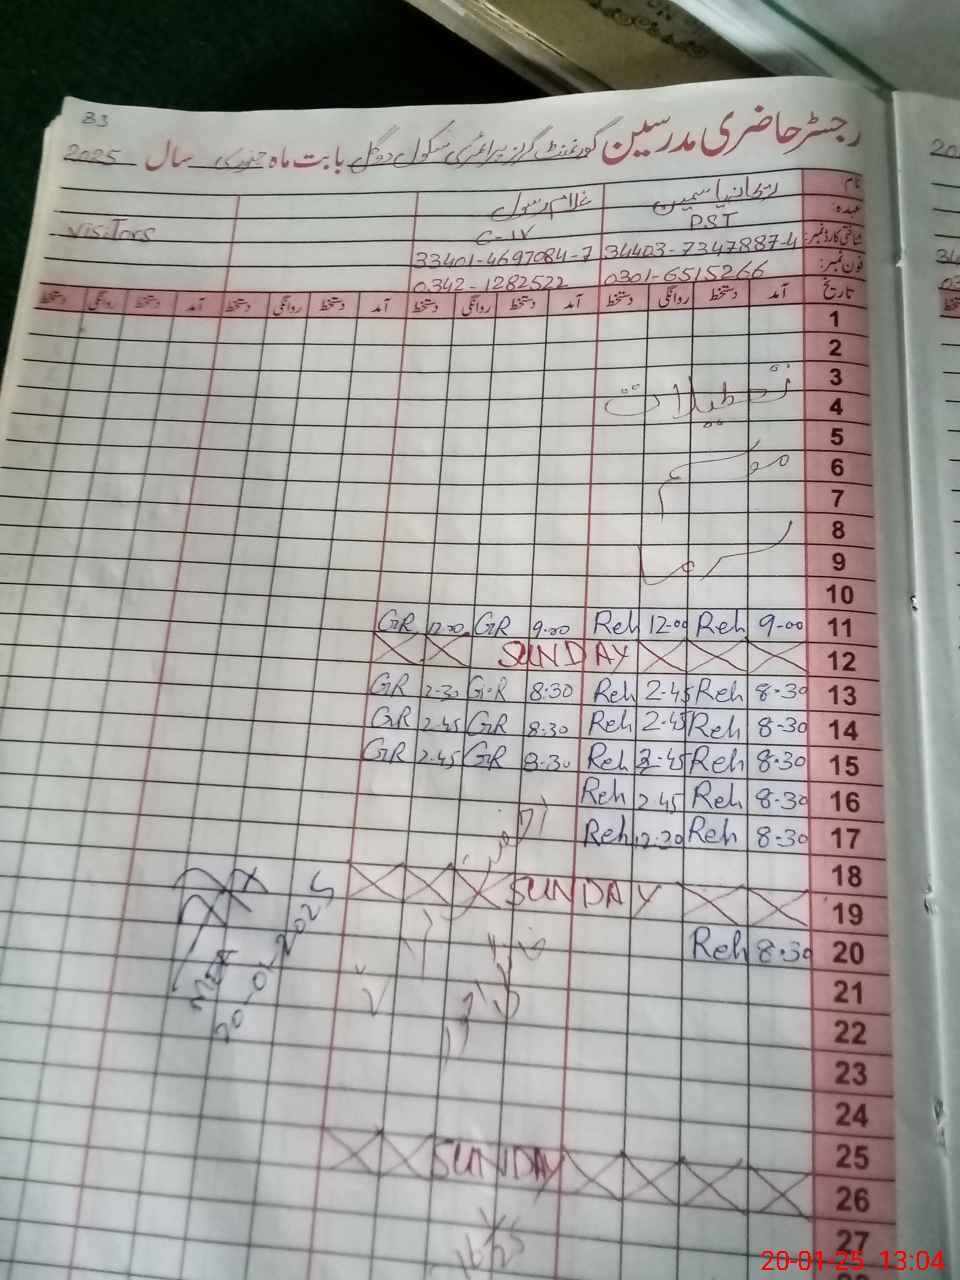 83
رجسٹر حاضری مدرسین گورنمنٹ گرلز پرائمری سکول دوگل بابت ماہ جنوری سال 2025
نام ریحانہ یاسمین غلام رسول
عہدہ: PST C-IV Visitors
شناختی کارڈ نمبر: 34403-7347887-4 33401-4697084-7
فون نمبر: 0301-6515266 0342-1282522
تاریخ آمد دستخط روانگی دستخط آمد دستخط روانگی دستخط آمد دستخط روانگی دستخط آمد دستخط روانگی دستخط
1
2
3 تعطیلات
4
5
6 موسم
7
8
9 سرما
10
11 9-00 Reh 12-00 Reh 9-00 GR 12-00 GR
12 SUNDAY
13 8-30 Reh 2-45 Reh 8-30 G-R 2-30 GR
14 8-30 Reh 2-45 Reh 8-30 GR 2-45 GR
15 8-30 Reh 2-45 Reh 8-30 GR 2-45 GR
16 8-30 Reh 2-45 Reh
17 8-30 Reh 12-30 Reh
18
19 SUNDAY
20 8-30 Reh
MEA
20-01-2025
21
22
23
24
25
26 SUNDAY
27
20-01-25 13:04